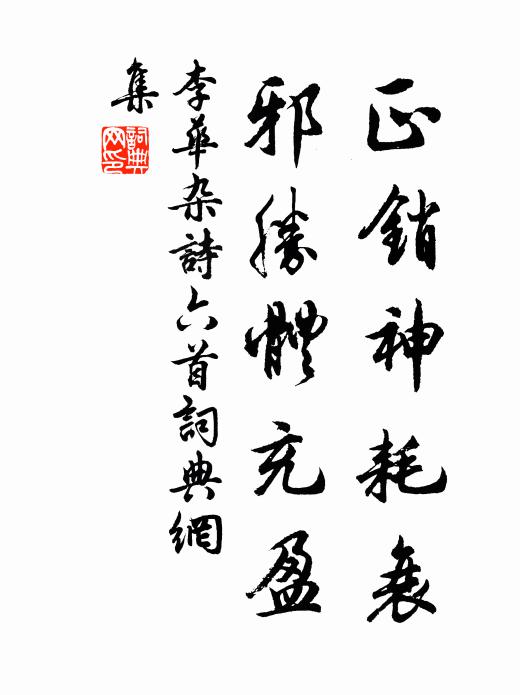 正銷神耗衰
邪勝體充盈
李華杂詩六首詞典網
集
詞典网印